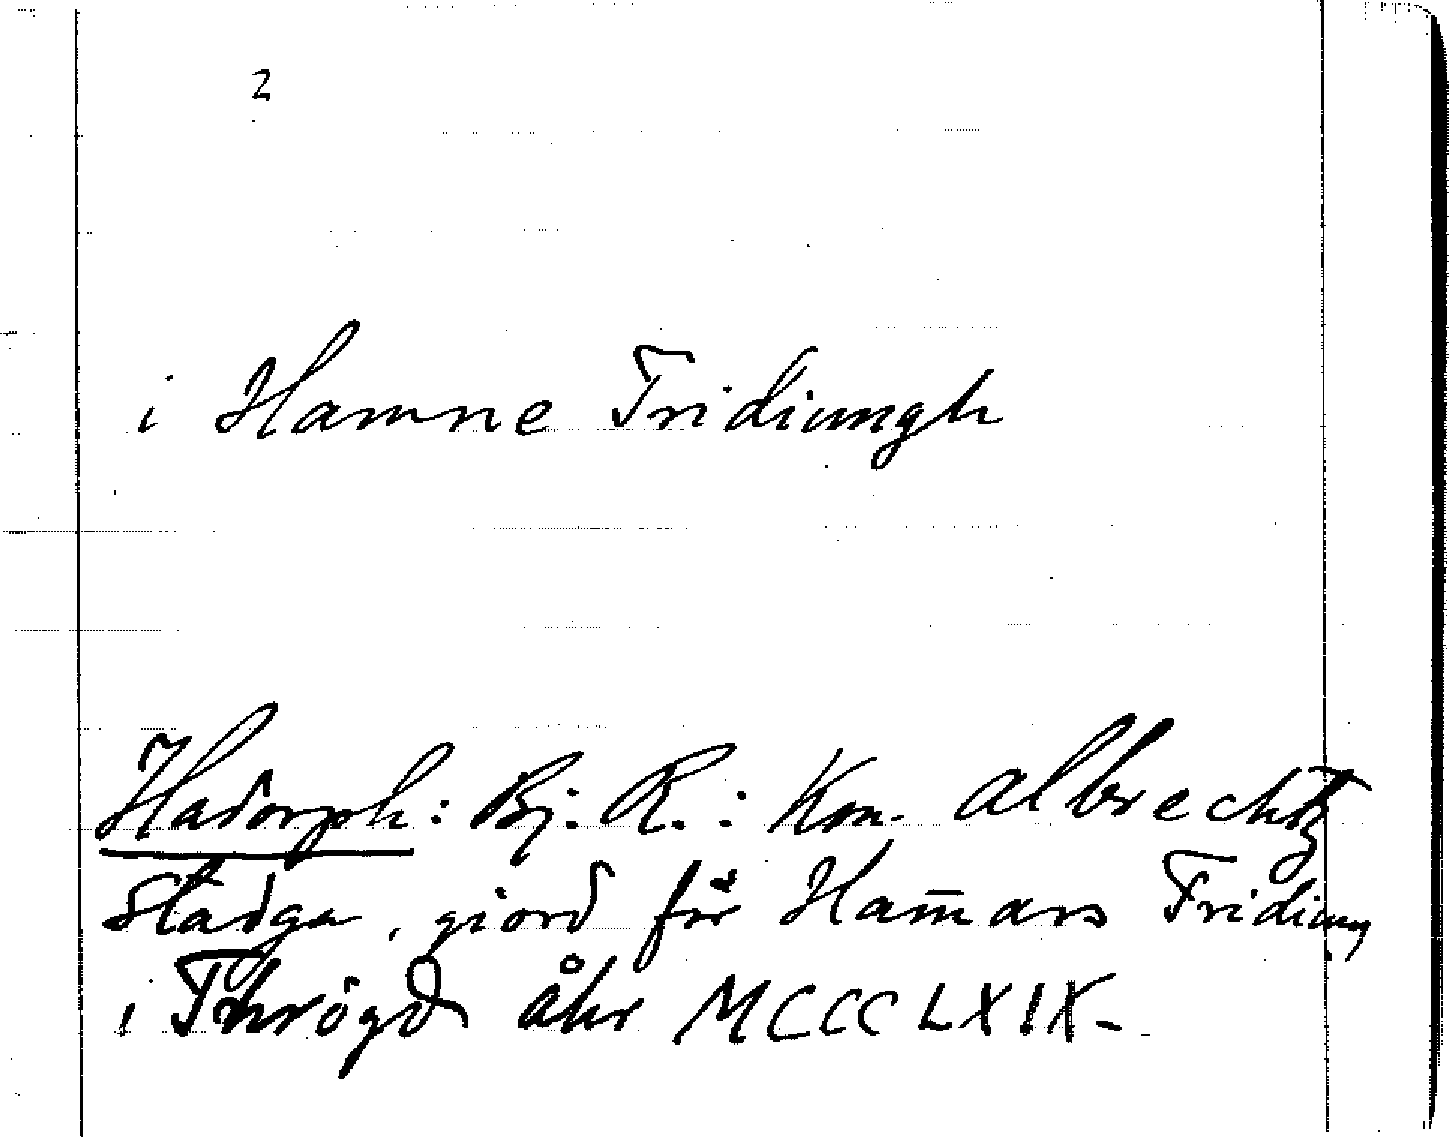 2
i Hamne Tridiungh
Hadorph: Bj. R.: Kon. Albrechtz
Stadga, giord för Ham̄ars Tridiung
i Thrögd åhr MCCCLXIX-